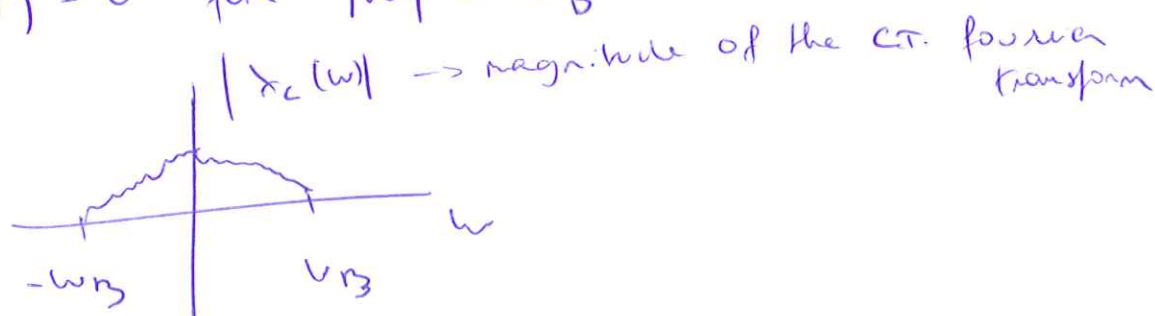 |Xc(w)| -> magnitude of the C.T. fourier
transform
w
-wB wB